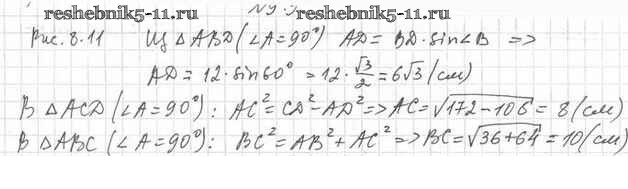 reshebnik5-11.ru reshebnik5-11.ru
Рис. 8.11 Из △ABD (∠A=90°) AD = BD·sin∠B =>
AD = 12·sin60° = 12·√3/2 = 6√3 (см)
В △ACD (∠A=90°): AC² = CD² - AD² => AC = √(172-108) = 8 (см)
В △ABC (∠A=90°): BC² = AB² + AC² => BC = √(36+64) = 10 (см)